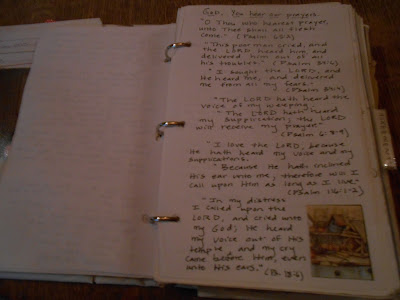 God, You hear our prayers.
"O Thou who hearest prayer,
unto Thee shall all flesh
come." (Psalm 65:2)
"This poor man cried, and
the LORD heard him and
delivered him out of all
his troubles." (Psalm 34:6)
"I sought the LORD, and
He heard me, and delivered
me from all my fears."
(Psalm 34:4)
"The LORD hath heard the
voice of my weeping.
"The LORD hath heard
my supplication; the LORD
will receive my prayer."
(Psalm 6:8-9)
"I love the LORD, because
He hath heard my voice and my
supplications.
"Because He hath inclined
His ear unto me, therefore will I
call upon Him as long as I live."
(Psalm 116:1-2)
"In my distress
I called upon the
LORD, and cried unto
my God; He heard
my voice out of His
temple, and my cry
came before Him, even
unto His ears."
(Ps. 18:6)